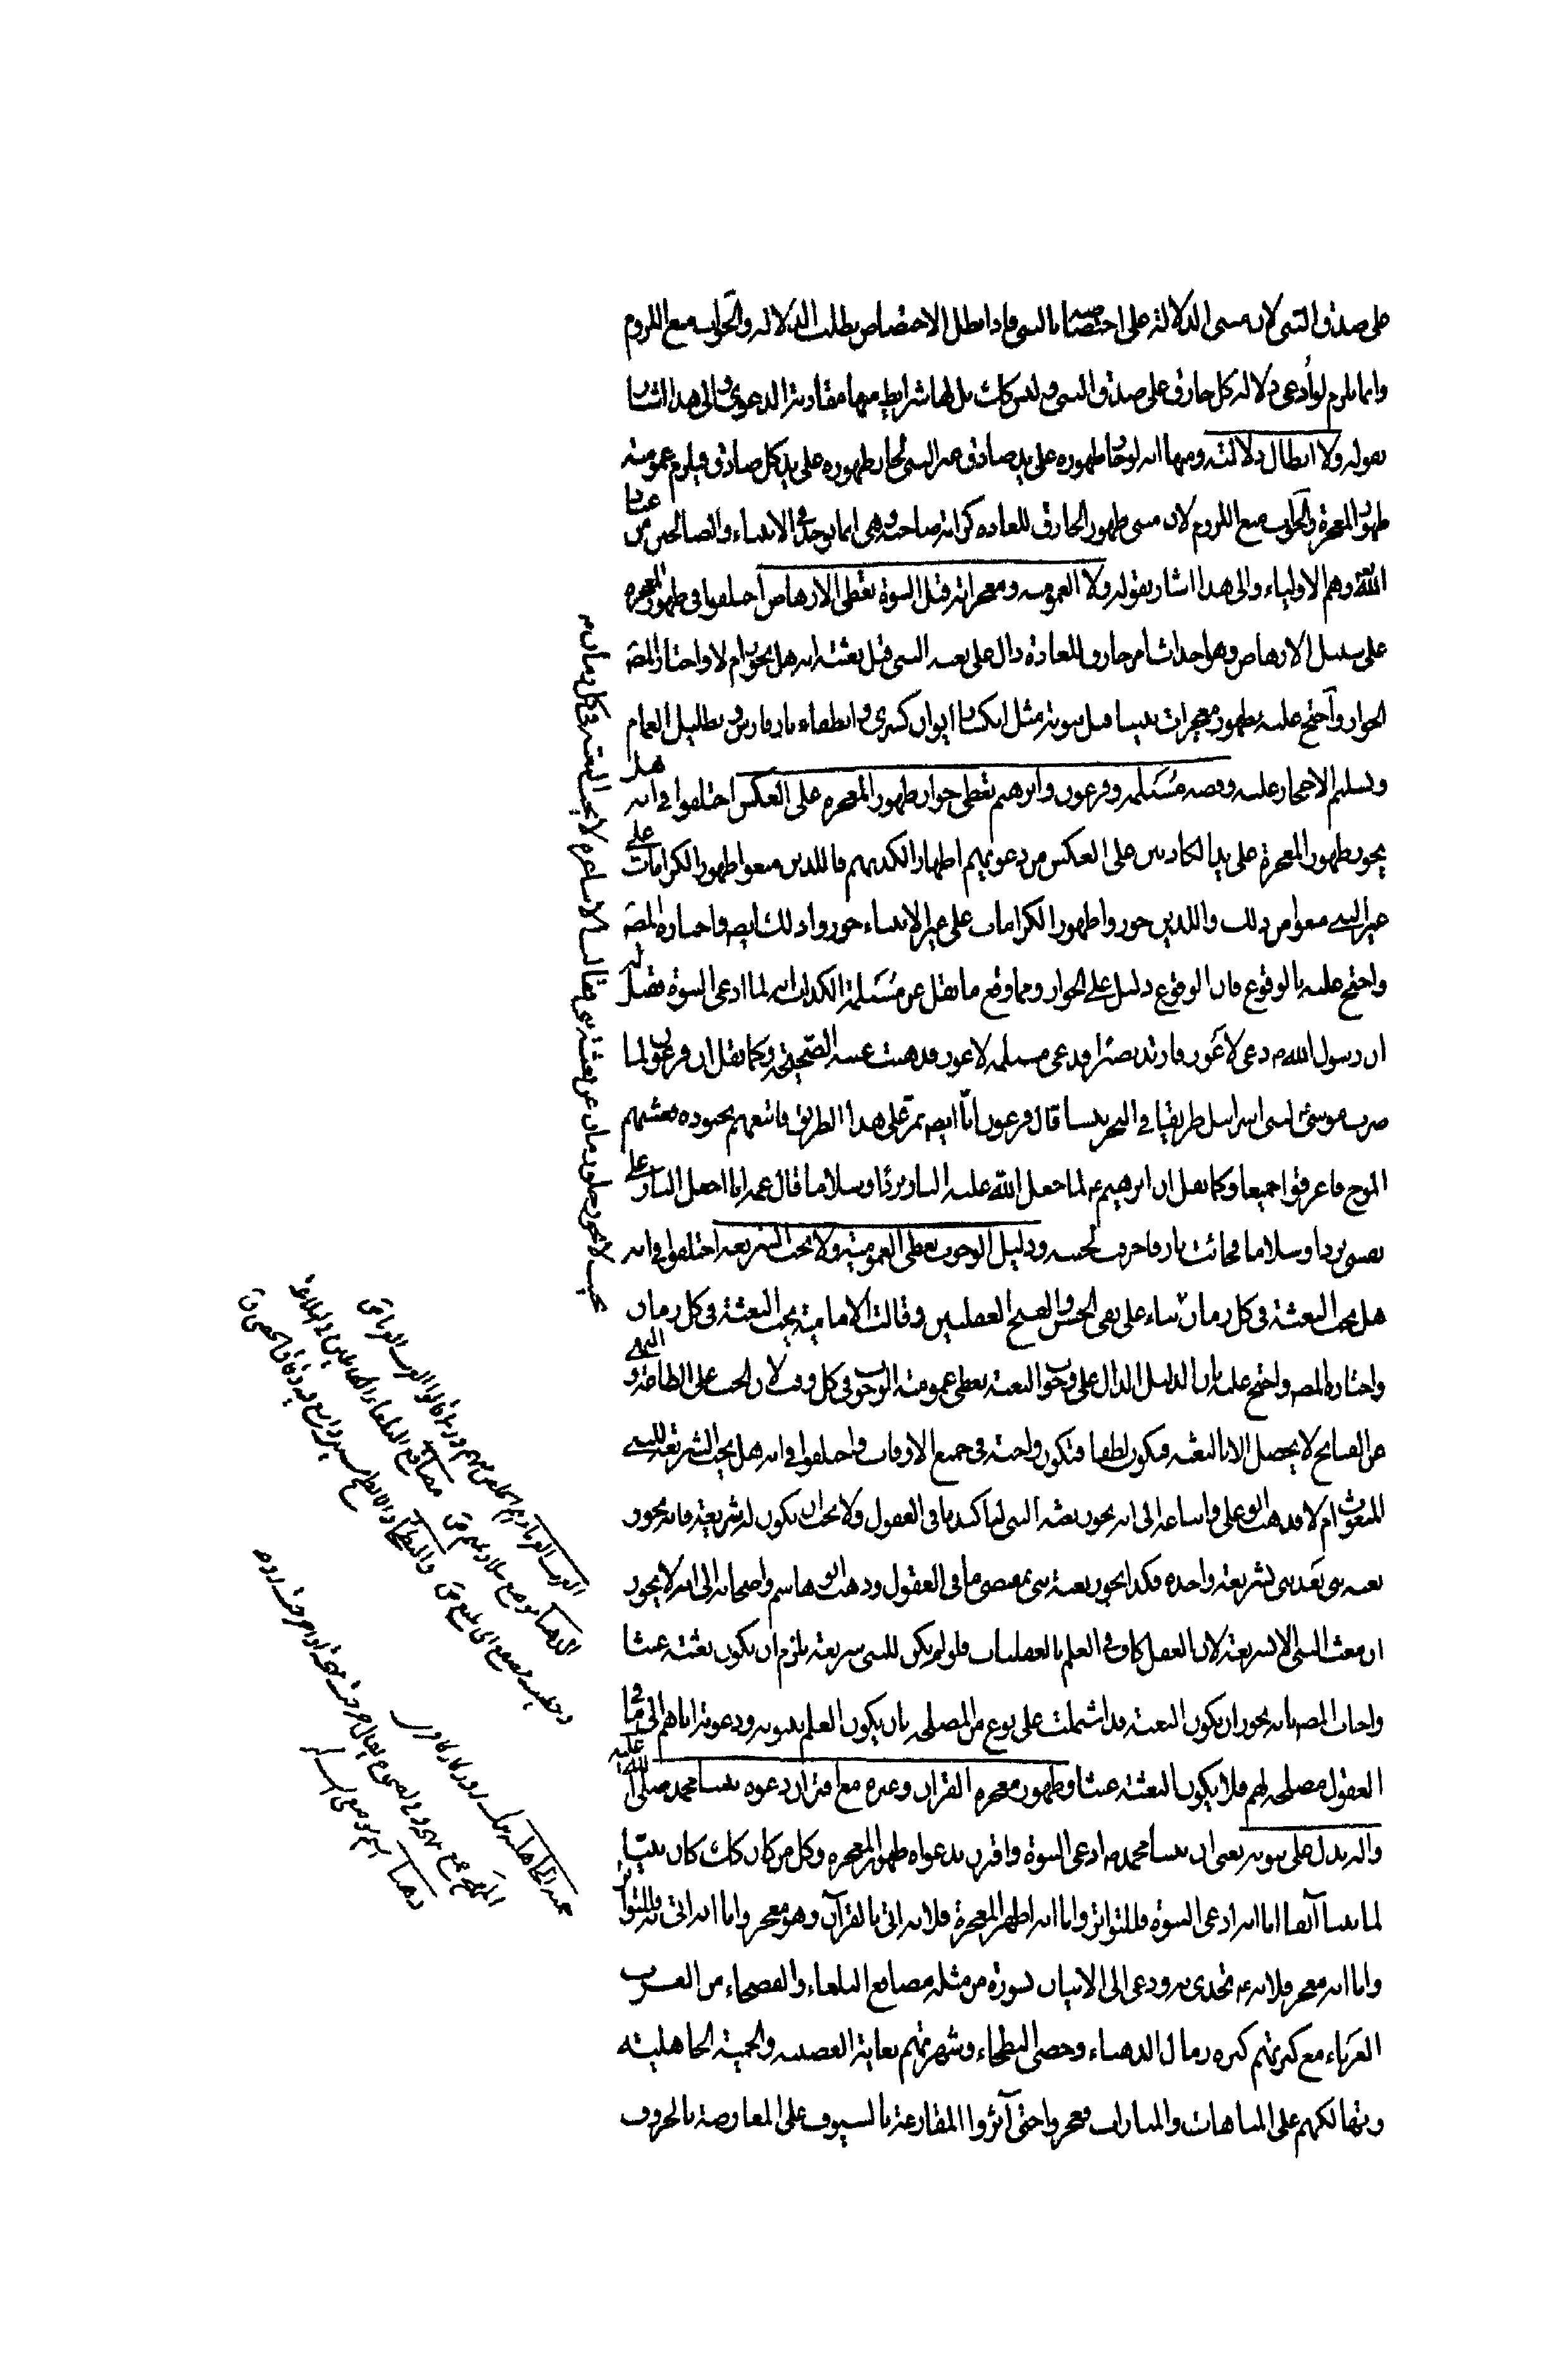 على صدق النبي لان مبنى الدلالة على اختصاصه بالنبي فاذا بطل الاختصاص بطلت الدلالة والجواب منع اللزوم
وانما يلزم لو ادعى دلالة كل خارق على صدق النبي وليس كذلك بل لها شرايط منها مقارنة الدعوى والى هذا اشار
بقوله ولا ابطال دلالته ومنها انه لو جاز ظهوره على يد صادق غير النبي لجاز ظهوره على يد كل صادق فيلزم عمومية
ظهور المعجزة والجواب منع اللزوم لان مبنى ظهور الخارق للعادة كرامة صاحبه وهي انما يوجد في الانبياء والصالحين من عباد
الله تع وهم الاولياء والى هذا اشار بقوله ولا العمومية ومعجزاته قبل النبوة يعطي الارهاص اختلفوا في ظهور المعجزة
على سبيل الارهاص وهو احداث امر خارق للعادة دال على بعثة النبي قبل بعثته انه هل يجوز ام لا واختار المصه
الجواز واحتج عليه بظهور معجزات نبينا قبل نبوته مثل انكسار ايوان كسرى وانطفاء نار فارس وتظليل الغمام
وتسليم الاحجار عليه وقصة مسيلمة وفرعون وابرهيم يعطي جواز ظهور المعجزة على العكس اختلفوا في انه هل
يجوز ظهور المعجزة على يد الكاذبين على العكس من دعويهم اظهارا لكذبهم فاللذين منعوا ظهور الكرامات على
غير النبي منعوا من ذلك واللذين جوزوا ظهور الكرامات على غير الانبياء جوزوا ذلك ايضه واختاره المصه
واحتج عليه بالوقوع فان الوقوع دليل على الجواز ومما وقع ما نقل عن مسيلمة الكذاب انه لما ادعى النبوة فقيل له
ان رسول الله م دعى لاعور فارتد بصيرا فدعى مسيلمة لاعور فذهبت عينه الصحيحة وكما نقل ان فرعون لما
ضرب موسى لبني اسرائيل طريقا في البحر يبسا قال فرعون انا ايضه نمر على هذا الطريق فاتبعهم بجنوده فغشيهم
الموج فاغرقوا جميعا وكما نقل ان ابرهيم ع لما جعل الله عليه النار بردا وسلاما قال عمه انا اجعل النار على
نفسي بردا وسلاما فجائت نار فاحرقت لحيته ودليل الوجوب يعطي العمومية ولا يجب الشريعة اختلفوا في انه
هل يجب البعثة في كل زمان بناء على نفي الحسن والقبح العقليين وقالت الامامية يجب البعثة في كل زمان
واختاره المصه واحتج عليه بان الدليل الدال على وجوب البعثة يعطي عمومية الوجوب في كل وقت لان الحث على الطاعة و النهي
عن القبايح لا يحصل الا بالبعثة فيكون لطفا فتكون واجبة في جميع الاوقات واختلفوا في انه هل يجب الشريعة للنبي
المبعوث ام لا فذهب ابو علي واتباعه الى انه يجوز بعثة النبي لتاكيد ما في العقول ولا يجب ان يكون له شريعة فانه يجوز
بعثة نبي بعد نبي بشريعة واحدة فكذا يجوز بعثة نبي بمقتضى ما في العقول وذهب ابو هاشم واصحابه الى انه لا يجوز
ان يبعث النبي الا بشريعة لان العقل كاف في العلم بالعقليات فلو لم يكن للنبي شريعة يلزم ان يكون بعثته عبثا
واجاب المصه بانه يجوز ان يكون البعثة قد اشتملت على نوع من المصلحة بان يكون العلم بنبوته ودعوته اياهم الى ما في
العقول مصلحة لهم فلا يكون البعثة عبثا وظهور معجزة القران وغيره مع اقتران دعوة نبينا محمد صلى الله عليه
واله يدل على نبوته يعني ان نبينا محمد م ادعى النبوة واقترن بدعواه ظهور المعجزة وكل من كان كذلك كان نبيا
لما بينا آنفا اما انه ادعى النبوة فللتواتر واما انه اظهر المعجزة فلانه اتى بالقرآن وهو معجز واما انه اتى به فللتواتر
واما انه معجز فلانه ع تحدى به ودعى الى الاتيان بسورة من مثله مصاقع البلغاء والفصحاء من العرب
العرباء مع كثرتهم كثرة رمال الدهناء وحصى البطحاء وشهرتهم بغاية العصبية والحمية الجاهلية
وتهالكهم على المباهات والمبارات فعجزوا حتى آثروا المقارعة بالسيوف على المعارضة بالحروف